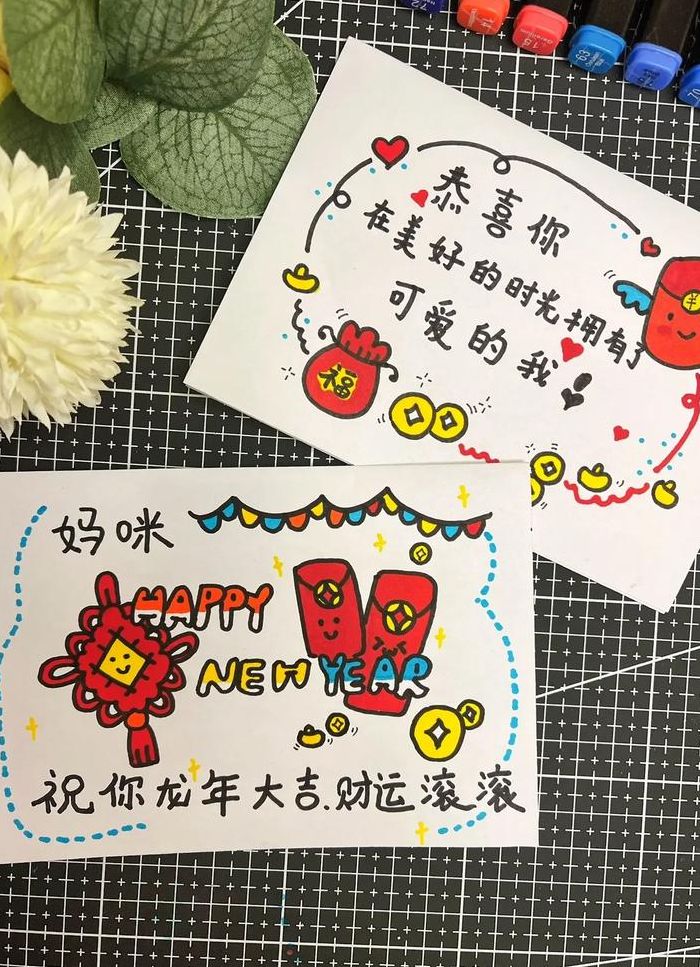 恭喜你
在美好的时光拥有了
可爱的我!
福
妈咪
HAPPY
NEW YEAR
祝你龙年大吉.财运滚滚